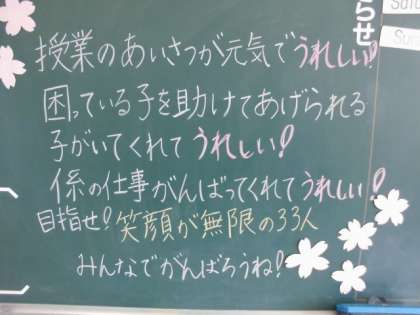 授業のあいさつが元気でうれしい!
困っている子を助けてあげられる
子がいてくれてうれしい!
係の仕事がんばってくれてうれしい!
目指せ!笑顔が無限の33人
みんなでがんばろうね!
らせ
Satu
Sun